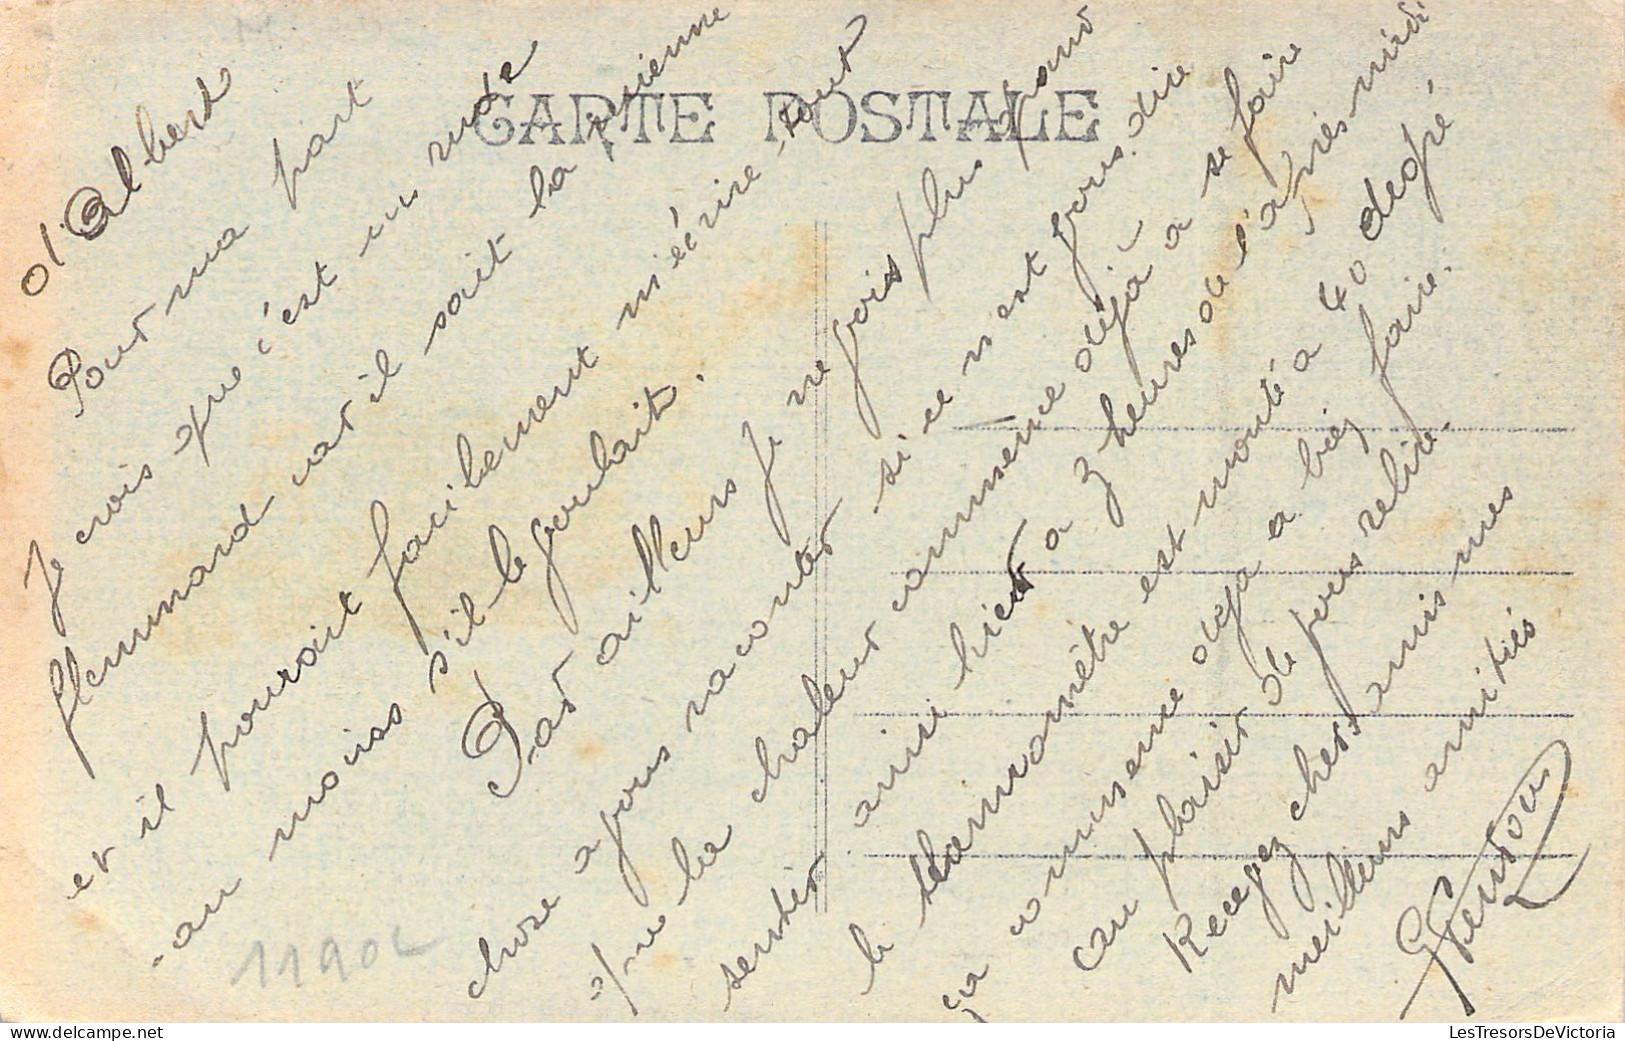 CARTE POSTALE
d'Albert
Pour ma part
Je crois que c'est un rude
flemmard car il sait la mienne
et il pourait facilement m'écrire, tout
au moins s'il le voulait.
Par ailleurs Je ne vois plus grand
chose a vous raconter si ce n'est vous dire
que la chaleur commence déjà a se faire
sentir ainsi hier a 3 heures de l'après midi
le thermomètre est monté a 40 degré
ça commence deja a bien faire.
Au plaisir de vous relire.
Recevez chers amis mes
meilleurs amitiés
11902
LesTresorsDeVictoria